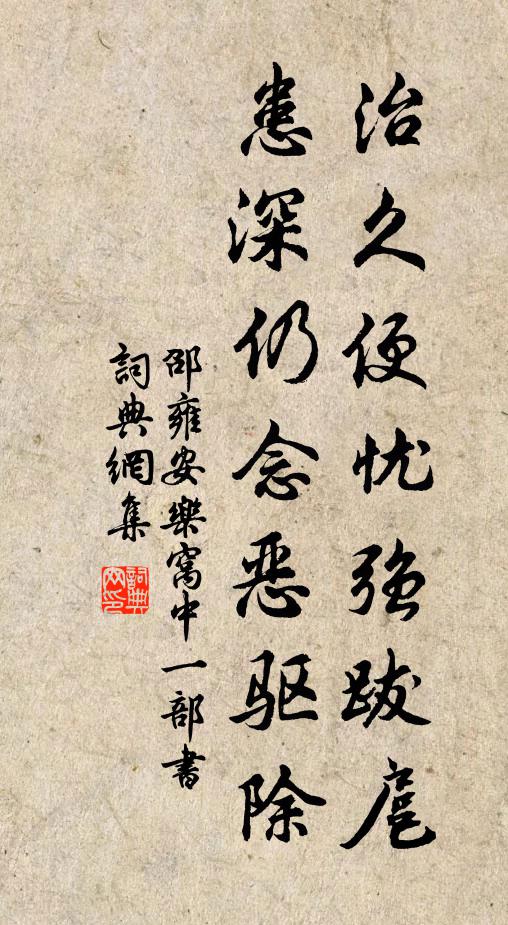 治久便忧强跋扈
患深仍念恶驱除
邵雍安樂窩中一部書
詞典網集
詞典网印